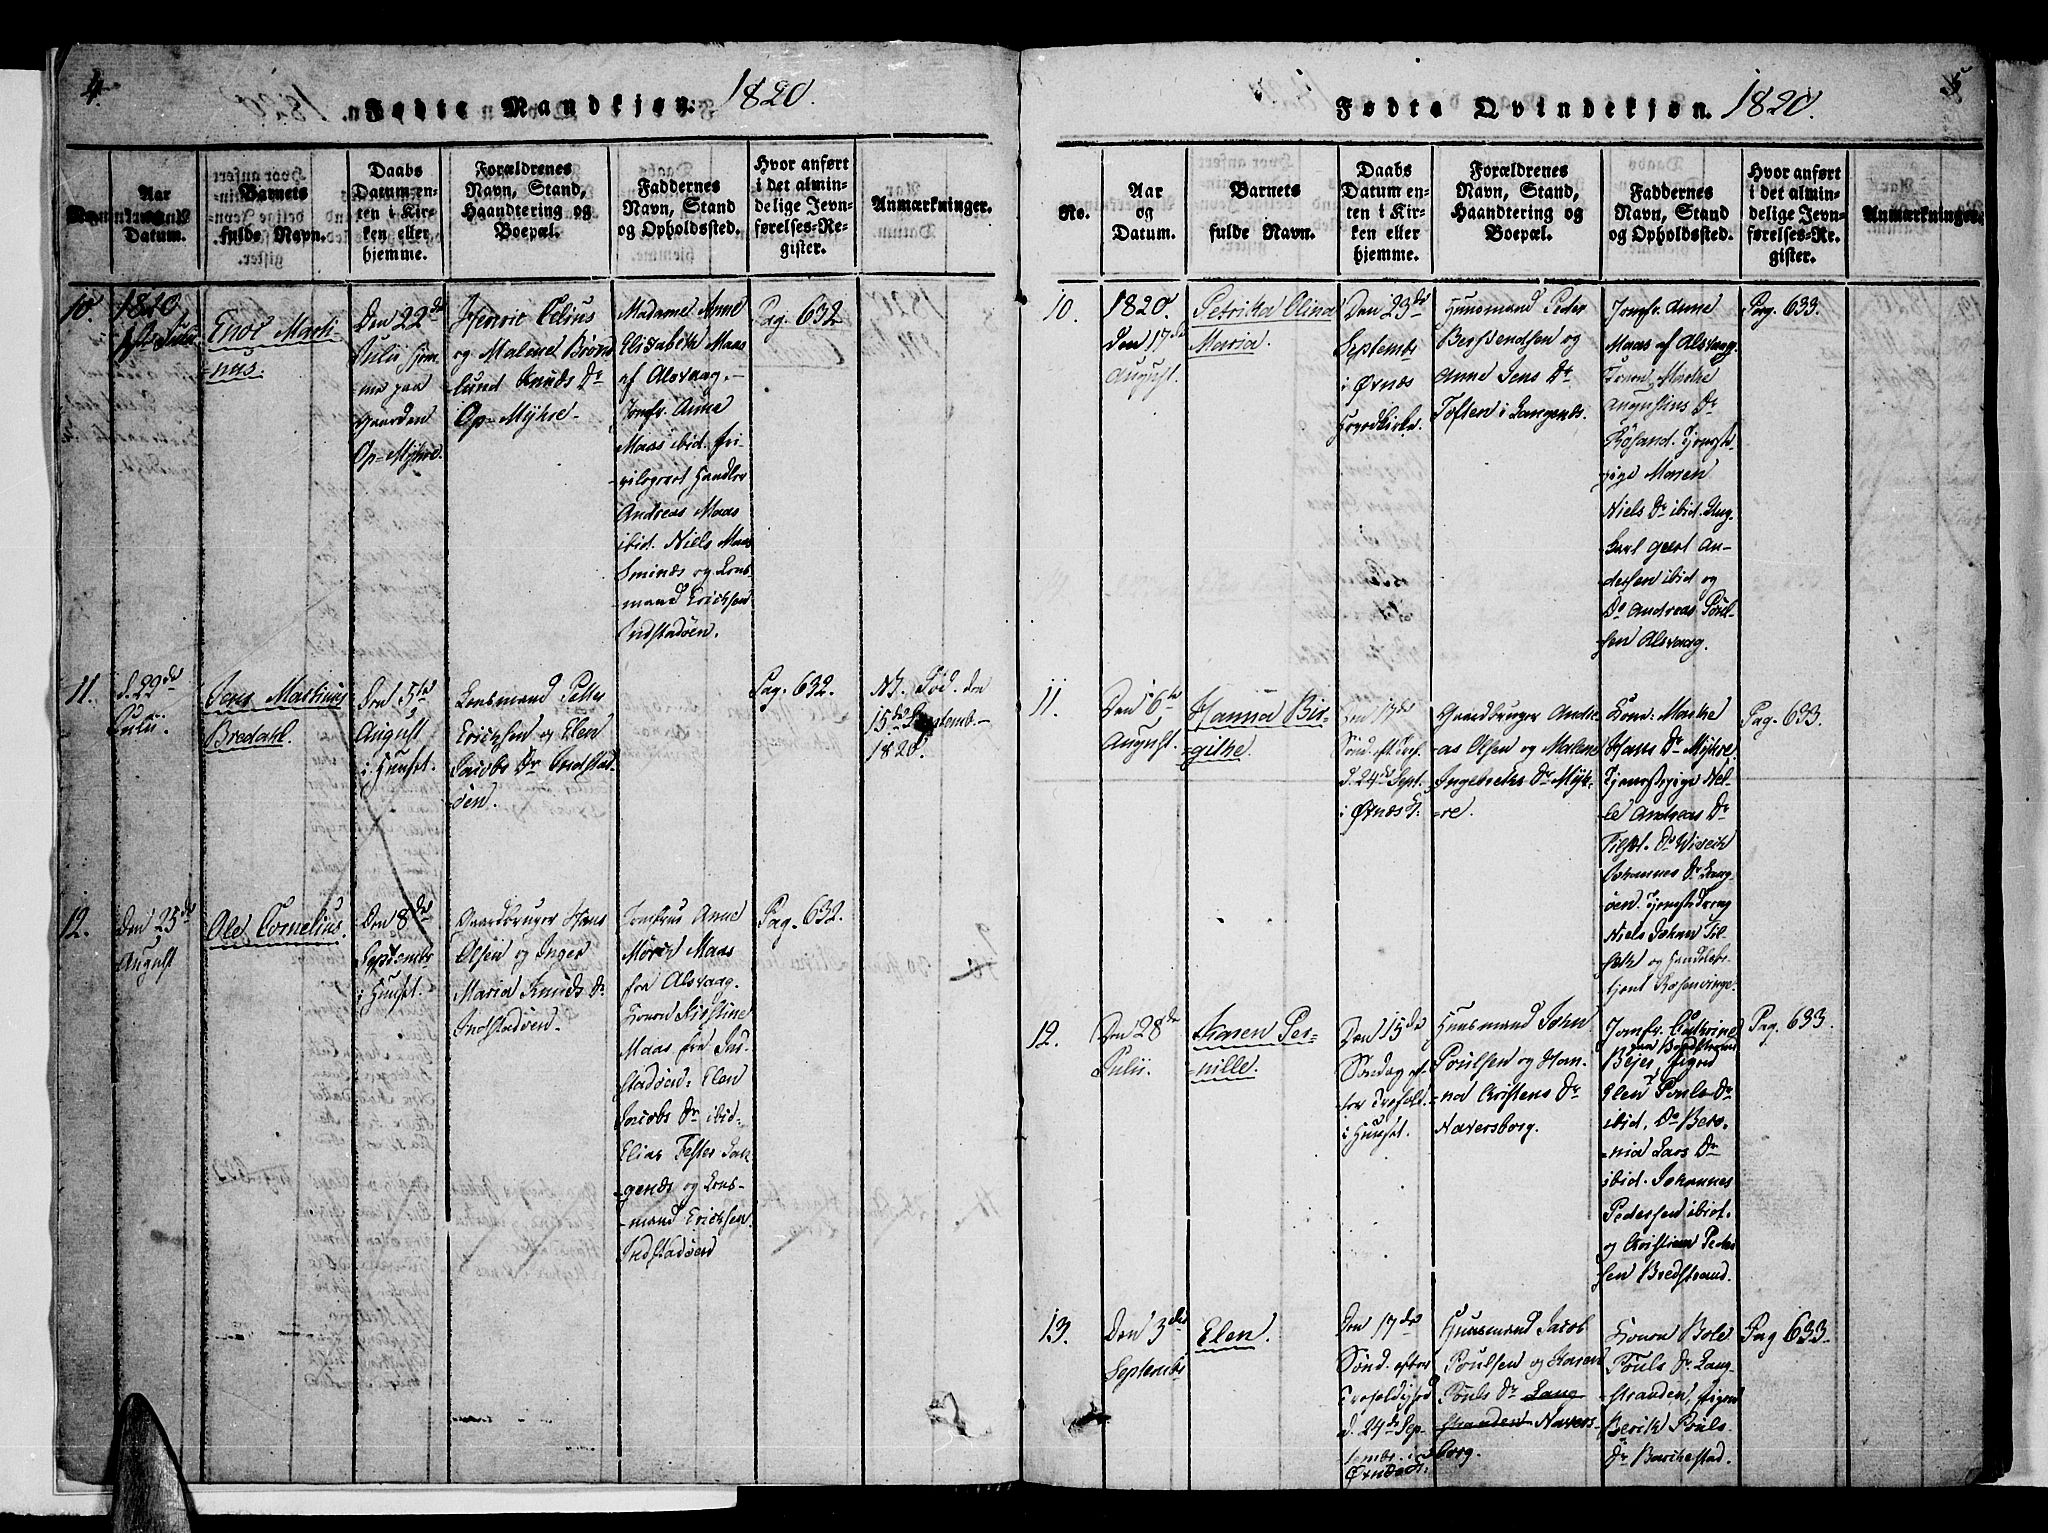 4.
Fødte Mandkjøn. 1820.
No.
Aar
og
Datum.
Barnets
fulde Navn.
Daabs
Datum en-
ten i Kir-
ken eller
hjemme.
Forældrenes
Navn, Stand,
Haandtering og
Boepæl.
Faddernes
Navn, Stand
og Opholdssted.
Hvor anført
i det almin-
delige Jevn-
førelses-Re-
gister.
Anmærkninger.
10.
1820
Juli
Enor Marti-
-nus.
Den 22de
Julii hjem-
me paa
Gaarden
Op-Myhre.
Henric Celius
og Malene Brøns
lund Knuds Dr
Op-Myhre-
Madame Anne
Elisabeth Maas
af Alsvaag.-
Jomfr. Anne
Maas ibid. Pri-
-vilegeret Handler
Andreas Maas
ibid. Niels Maas
Sminæs og Lens-
mand Erichsen
Indstadøen.
Pag. 632
11.
d. 29de
Julii.
Jens Martinus
Bredahl.
Den 5te
August
i Huuset.
Lensmand Petter
Erichsen og Elen
Jacobs Dr Indstad-
øen.
Pag. 632.
Nt. Død. den
15de Septemb.-
1820.
12.
Den 25de
August
Ole Cornelius.
Den 8de
Septembr
i Huuset.
Gaardbruger Hans
Olsen og Inger
Maria Knuds Dr
Indstadøen.
Jomfrue Anne
Maas
fra Alsvaag.
Konen Kirstine
Maas fra Ind-
stadøen. Elen
Jacobs Dr ibid.
Elias Tofter Lan-
-genes og Lens-
-mand Erichsen
Indstadøen
Pag. 632.
5
Fødte Qvindekjøn. 1820.
No.
Aar
og
Datum.
Barnets
fulde Navn.
Daabs
Datum en-
ten i Kir-
ken eller
hjemme.
Forældrenes
Navn, Stand,
Haandtering og
Boepæl.
Faddernes
Navn, Stand
og Opholdssted.
Hvor anført
i det almin-
delige Jevn-
førelses-Re-
gister.
Anmærkninger.
10.
1820.
den 17de
August.
Petrika Olina
Maria.
Den 23de
Septembr
i Øxnes
Hovedkirke.
Huusmand Peder
Berntsendsen og
Anne Jens Dr
Toften i Langenes.
Jomfr. Anne
Maas af Alsvaag.
Konen Marthe
Augustinus Dr
Røsand. Tjeneste-
pige Maren
Niels Dr ibid. Ung-
-karl Geert An-
dersen ibid og
Do Andreas Poul-
sen Alsvaag.
Pag. 633.
11.
Den 16de
August.
Hanna Bir-
-githe.
Den 17de
Sønd. eft. Tref.
d. 24de Sept.
i Øxnes K:
Gaardbruger Andre-
as Olsen og Malene
Ingebrects Dr Myh-
-re.
Kone Marthe
Hans Dr Myhre,
Tjenestepige Nel-
le Andreas Dr
Do Wivich
Johannes Dr Lang-
øen. Tjenestedreng
Niels Johns
og Handels-
tjent Rosenvinge.
Pag. 633.
12.
Den 28de
Julii.
Karen Per-
-nille.
Den 15de
Søndag ef-
ter Trefold.
i Huuset.
Huusmand John
Poulsen og Han-
-na Christens Dr
Naversborg.
Jomfr. Cathrine
Beyer fra Bredstrand
Pigen
Elen Pouls Dr
ibid. Do Berr-
-nia Lars Dr
ibid. Johannes
Pedersen ibid.
og Christian Peder
sen Bredstrand.
Pag. 633.
13.
Den 3die
Septembr
Elen.
Den 17de
Sønd. efter
Trefoldighed
d. 24de Sep-
tembr. i
Øxnes K:
Huusmand Jacob
Poulsen og Karen
Pouls Dr Lang
stranden Navers-
borg.
Konen Bole
Pouls Dr Lang-
stranden, Pigen
Berith Pouls
Dr Barkestad.
Pag 633.